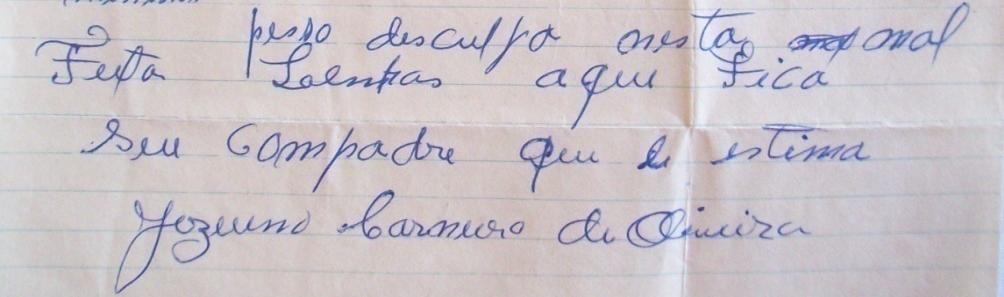 pesso desculpa nesta mal
Feita Leentras aqui Fica
Seu Compadre que le estima
Jozeuno Carneiro de Oliveira